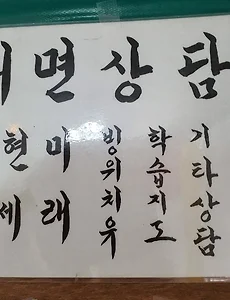 면상담
현세
미래
빙위치유
학습지도
기타상담